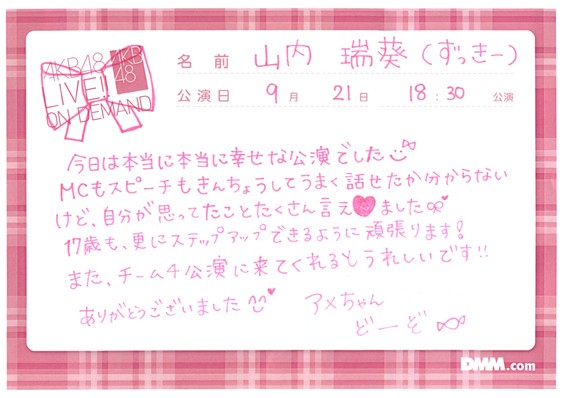 AKB48
LIVE!!
ON DEMAND
AKB
48
名前 山内 瑞葵(ずっきー)
公演日 9月 21日 18:30 公演
今日は本当に本当に幸せな公演でした
MCもスピーチもきんちょうしてうまく話せたか分からない
けど、自分が思ってたことたくさん言えました
17歳も、更にステップアップできるように頑張ります!
また、チーム4公演に来てくれるとうれしいです!!
ありがとうございました
アメちゃん
どーぞ
DMM.com